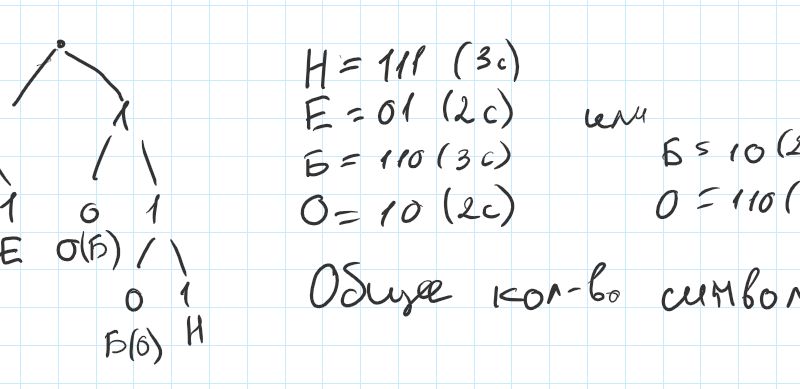 Н = 111 (3с)
Е = 01 (2с)
или
Б = 110 (3с)
Б = 10 (2
О = 10 (2с)
О = 110 (
1
1 0 1
Е О(Б)
0 1
Б(О) Н
Общее кол-во символ